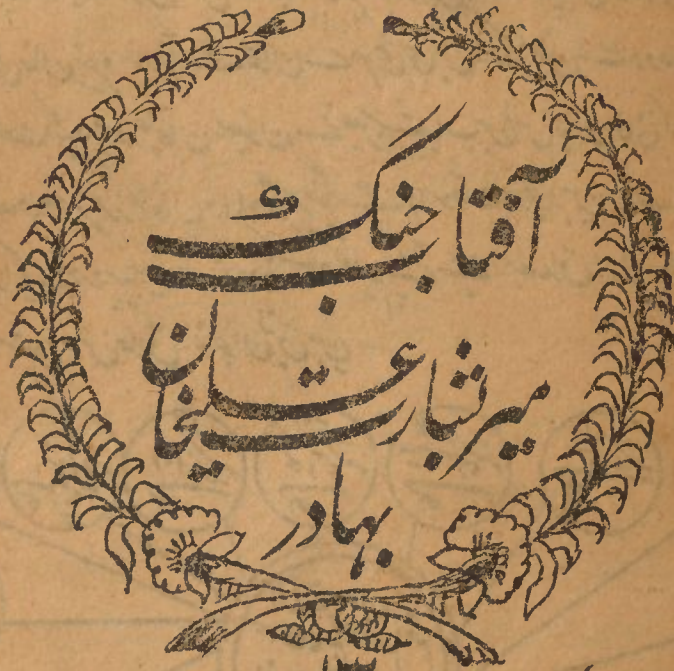 آفتاب جنگ
میر بشارت علیخان
بہادر
۱۳